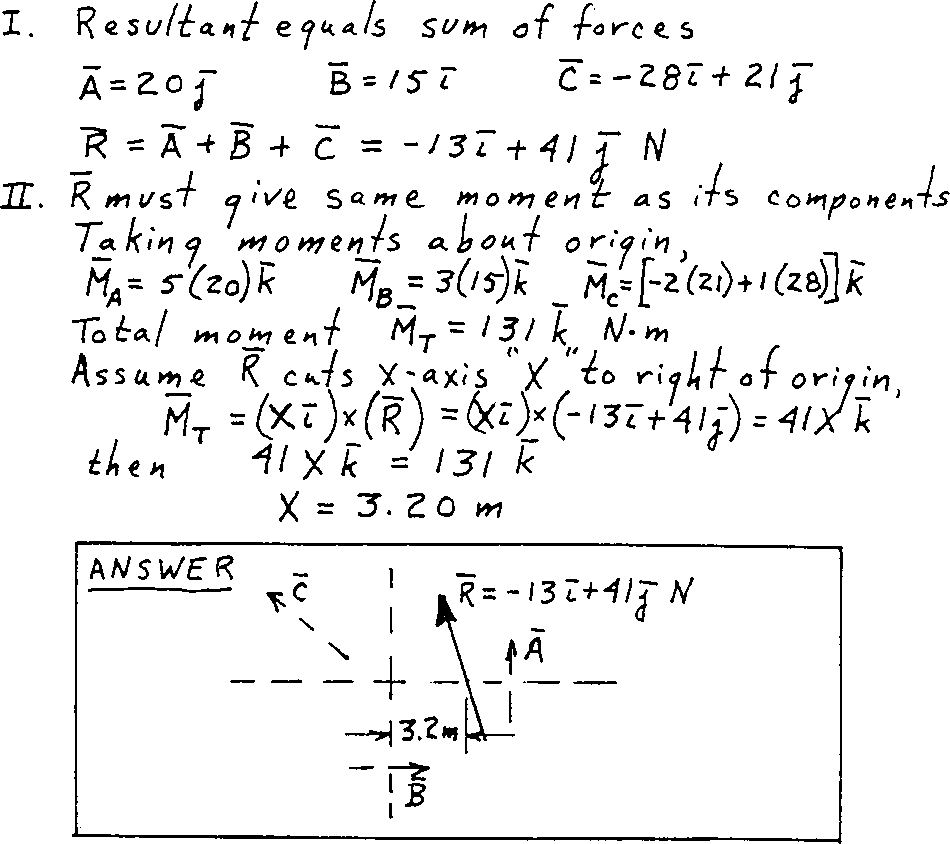 I. Resultant equals sum of forces
A̅ = 20 j̅    B̅ = 15 i̅    C̅ = -28 i̅ + 21 j̅
R̅ = A̅ + B̅ + C̅ = -13 i̅ + 41 j̅ N
II. R̅ must give same moment as its components
Taking moments about origin,
M̅_A = 5(20) k̅    M̅_B = 3(15) k̅    M̅_C = [-2(21)+1(28)] k̅
Total moment M̅_T = 131 k̅ N·m
Assume R̅ cuts x-axis "X" to right of origin,
M̅_T = (X i̅) × (R̅) = (X i̅) × (-13 i̅ + 41 j̅) = 41 X k̅
then 41 X k̅ = 131 k̅
X = 3.20 m
ANSWER
C̅
R̅ = -13 i̅ + 41 j̅ N
A̅
3.2 m
B̅